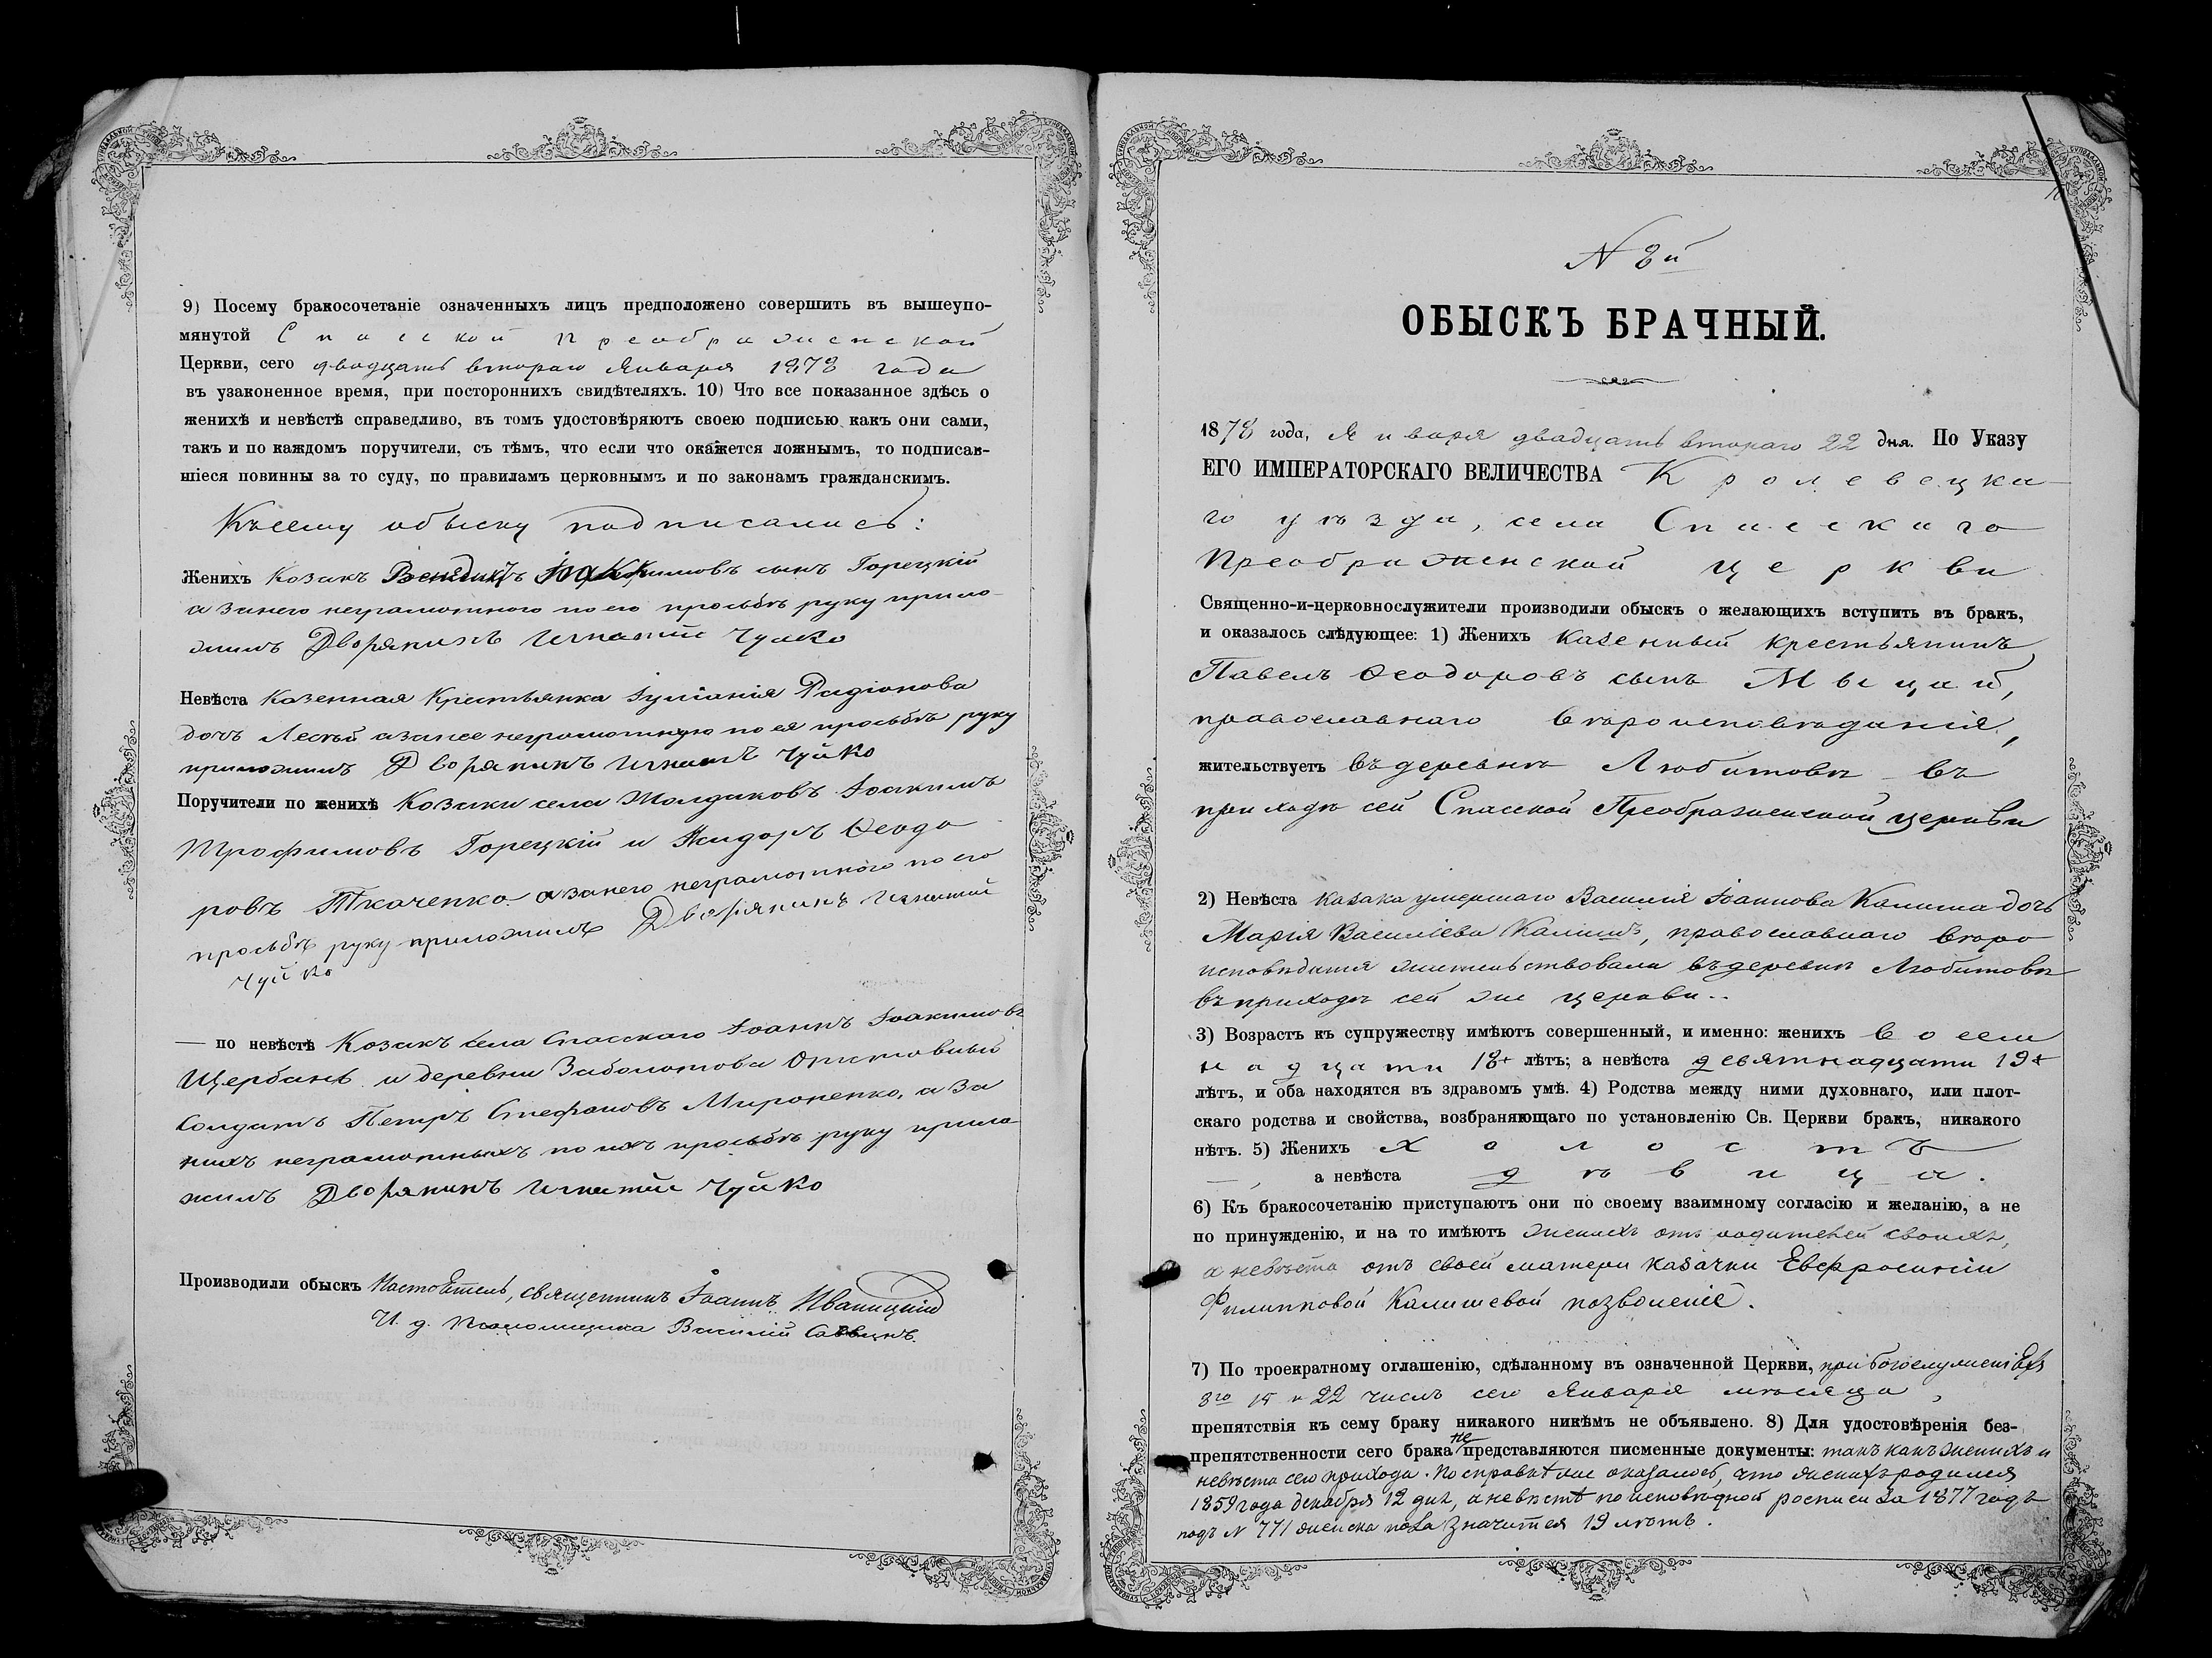 9) Посему бракосочетаніе означенныхъ лицъ предположено совершить въ вышеупо-
мянутой Спасской Преображенской
Церкви, сего двадцать втораго Января 1878 года
въ узаконенное время, при постороннихъ свидѣтеляхъ. 10) Что все показанное здѣсь о
женихѣ и невѣстѣ справедливо, въ томъ удостовѣряютъ своею подписью какъ они сами,
такъ и по каждомъ поручители, съ тѣмъ, что если что окажется ложнымъ, то подписав-
шіеся повинны за то суду, по правиламъ церковнымъ и по законамъ гражданскимъ.
Къ сему обыску подписались:
Женихъ Козакъ Іоакимовъ сынъ Горецкій
а за него неграмотного по его просьбѣ руку прило-
жилъ Дворянинъ Игнатій Чуйко
Невѣста Казенная Крестьянка Іуліанія Радіонова
дочь а за нее неграмотную по ея просьбѣ руку
приложилъ Дворянинъ Игнатій Чуйко
Поручители по женихѣ Козаки села Жолдаковъ Іоакимъ
Трофимовъ Горецкій и Исидоръ Ѳеодо
ровъ Ткаченко а за него неграмотного по его
просьбѣ руку приложилъ Дворянинъ Игнатій
Чуйко
— по невѣстѣ Козакъ села Спасскаго Іоаннъ Іоакимовъ
Щербань и деревни Заболотова Отставный
Солдатъ Петръ Стефановъ Мироненко, а за
нихъ неграмотныхъ по ихъ просьбѣ руку прило-
жилъ Дворянинъ Игнатій Чуйко
Производили обыскъ Настоятель, священникъ Іоаннъ Иваницкій
И. д. Псаломщика Василій Саввичъ.
N 8й
ОБЫСКЪ БРАЧНЫЙ.
1878 года, Января двадцать втораго 22 дня. По Указу
ЕГО ИМПЕРАТОРСКАГО ВЕЛИЧЕСТВА Кролевецка-
го уѣзда, села Спасскаго
Преображенской церкви
Священно-и-церковнослужители производили обыскъ о желающихъ вступить въ бракъ,
и оказалось слѣдующее: 1) Женихъ казенный крестьянинъ
Павелъ Ѳеодоровъ сынъ Мыцай,
православнаго вѣроисповѣданія,
жительствуетъ въ деревнѣ Любитовѣ въ
приходѣ сей Спасской Преображенской церкви
2) Невѣста казака умершаго Василія Іоаннова Калиша дочь
Марія Василіева Калишъ, православнаго вѣро
исповѣданія жительствовала въ деревнѣ Любитовѣ
въ приходѣ сей же церкви..
3) Возрастъ къ супружеству имѣютъ совершенный, и именно: женихъ восем
надцати 18ᵗ лѣтъ; а невѣста девятнадцати 19ᵗ
лѣтъ, и оба находятся въ здравомъ умѣ. 4) Родства между ними духовнаго, или плот-
скаго родства и свойства, возбраняющаго по установленію Св. Церкви бракъ, никакого
нѣтъ. 5) Женихъ холостъ
—, а невѣста дѣвица.
6) Къ бракосочетанію приступаютъ они по своему взаимному согласію и желанію, а не
по принужденію, и на то имѣютъ женихъ отъ родителей своихъ,
а невѣста отъ своей матери казачки Евфросиніи
Филипповой Калишевой позволеніе.
7) По троекратному оглашенію, сдѣланному въ означенной Церкви, при богослуженіяхъ
8го 15 и 22 числъ сего Января мѣсяца,
препятствія къ сему браку никакого никѣмъ не объявлено. 8) Для удостовѣренія без-
препятственности сего брака не представляются писменные документы: такъ какъ женихъ и
невѣста сего прихода. По справкѣ же оказалось, что женихъ родился
1859 года декабря 12 дня, а невѣстѣ по исповѣдной росписи за 1877 годъ
подъ N 771 женска пола значится 19 лѣтъ.